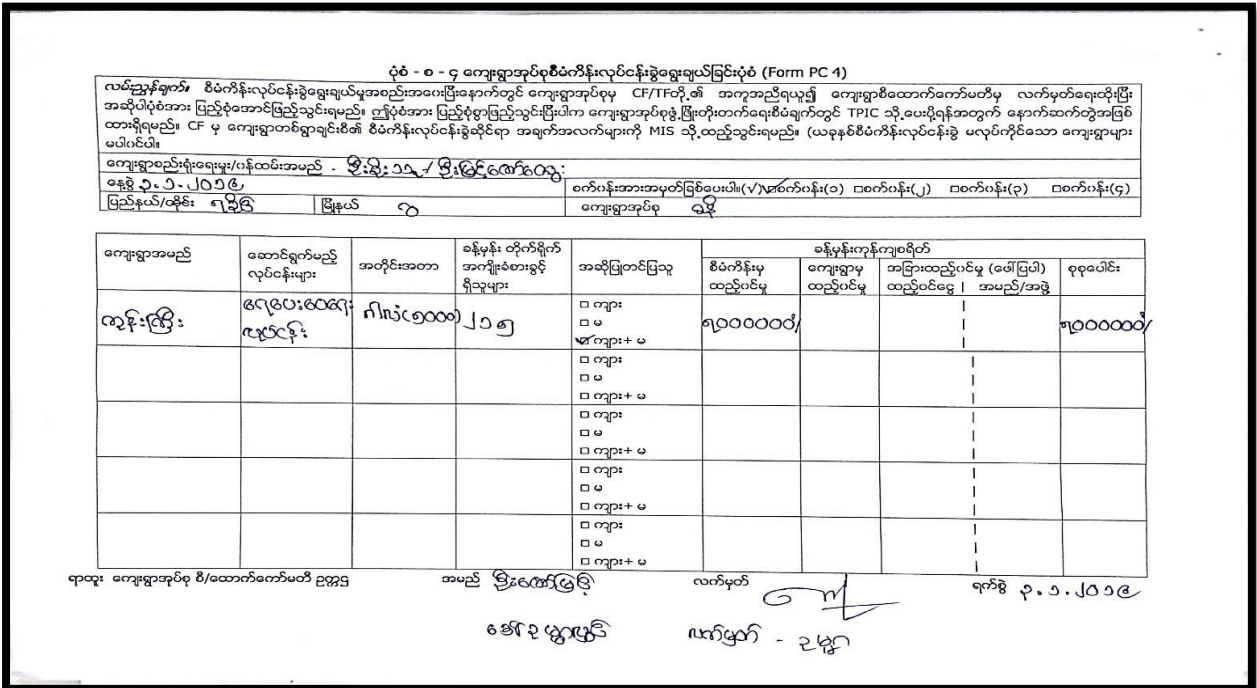 ပုံစံ - စ - ၄ ကျေးရွာအုပ်စုစီမံကိန်းလုပ်ငန်းခွဲရွေးချယ်ခြင်းပုံစံ (Form PC 4)
လမ်းညွှန်ချက်။ စီမံကိန်းလုပ်ငန်းခွဲရွေးချယ်မှုအစည်းအဝေးပြီးနောက်တွင် ကျေးရွာအုပ်စုမှ CF/TFတို့၏ အကူအညီရယူ၍ ကျေးရွာစီထောက်ကော်မတီမှ လက်မှတ်ရေးထိုးပြီး
အဆိုပါပုံစံအား ပြည့်စုံအောင်ဖြည့်သွင်းရမည်။ ဤပုံစံအား ပြည့်စုံစွာဖြည့်သွင်းပြီးပါက ကျေးရွာအုပ်စုဖွံ့ဖြိုးတိုးတက်ရေးစီမံချက်တွင် TPIC သို့ပေးပို့ရန်အတွက် နောက်ဆက်တွဲအဖြစ်
ထားရှိရမည်။ CF မှ ကျေးရွာတစ်ရွာချင်းစီ၏ စီမံကိန်းလုပ်ငန်းခွဲဆိုင်ရာ အချက်အလက်များကို MIS သို့ထည့်သွင်းရမည်။ (ယခုနှစ်စီမံကိန်းလုပ်ငန်းခွဲ မလုပ်ကိုင်သော ကျေးရွာများ
မပါဝင်ပါ။
ကျေးရွာစည်းရုံးရေးမှူး/ဝန်ထမ်းအမည် -
နေ့စွဲ ၃.၁.၂၀၁၉ စက်ဝန်းအားအမှတ်ခြစ်ပေးပါ။(√) ☑စက်ဝန်း(၁) □စက်ဝန်း(၂) □စက်ဝန်း(၃) □စက်ဝန်း(၄)
ပြည်နယ်/တိုင်း ရခိုင် မြို့နယ် ဂွ ကျေးရွာအုပ်စု
ကျေးရွာအမည် ဆောင်ရွက်မည့် လုပ်ငန်းများ အတိုင်းအတာ ခန့်မှန်း တိုက်ရိုက် အကျိုးခံစားခွင့် ရှိသူများ အဆိုပြုတင်ပြသူ ခန့်မှန်းကုန်ကျစရိတ်
စီမံကိန်းမှ ထည့်ဝင်မှု ကျေးရွာမှ ထည့်ဝင်မှု အခြားထည့်ဝင်မှု (ဖော်ပြပါ) ထည့်ဝင်ငွေ | အမည်/အဖွဲ့ စုစုပေါင်း
ကွန်းကြီး ရေပေးဝေရေး လုပ်ငန်း ဂါလံ(၅၀၀၀) ၂၁၅ □ ကျား
□ မ
☑ ကျား+ မ ၅၀၀၀၀၀၀ိ/ ၅၀၀၀၀၀၀ိ/
□ ကျား
□ မ
□ ကျား+ မ
□ ကျား
□ မ
□ ကျား+ မ
□ ကျား
□ မ
□ ကျား+ မ
□ ကျား
□ မ
□ ကျား+ မ
ရာထူး ကျေးရွာအုပ်စု စီ/ထောက်ကော်မတီ ဥက္ကဌ အမည် လက်မှတ် ရက်စွဲ ၃.၁.၂၀၁၉
လက်မှတ် -